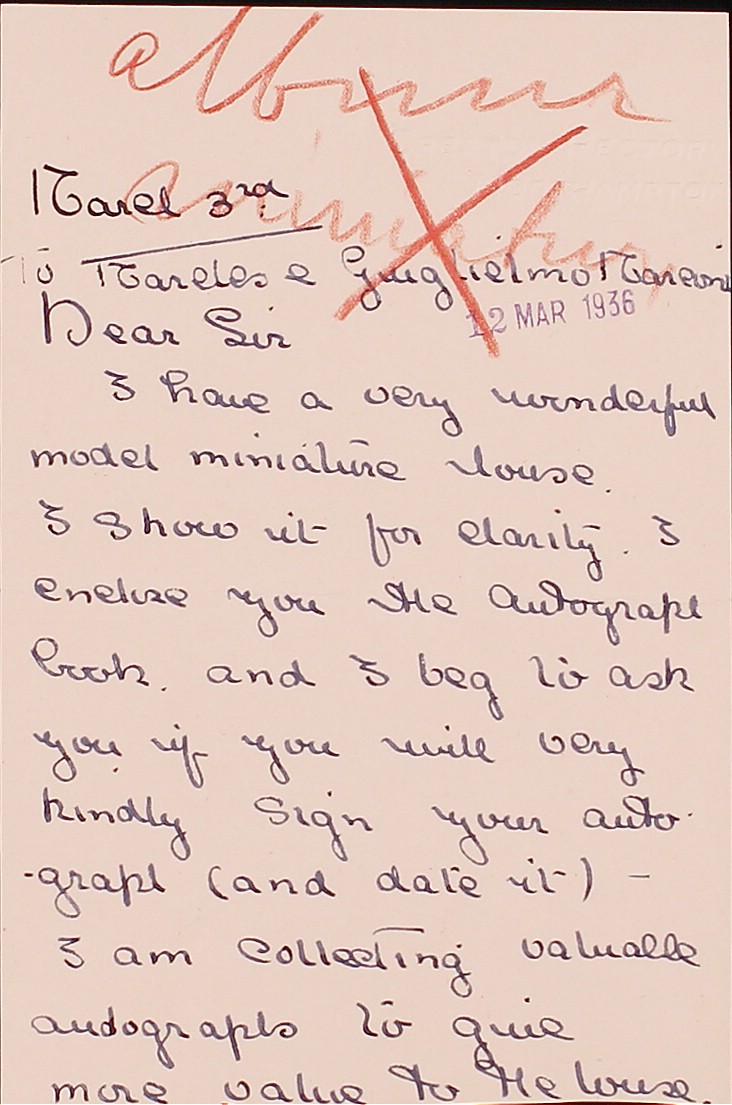 album
March 3rd
miniature
To Marchese Guglielmo Marconi
12 MAR 1936
Dear Sir
I have a very wonderful
model miniature house.
I show it for charity. I
enclose you the autograph
book. and I beg to ask
you if you will very
kindly sign your auto-
-graph (and date it) -
I am collecting valuable
autographs to give
more value to the house.